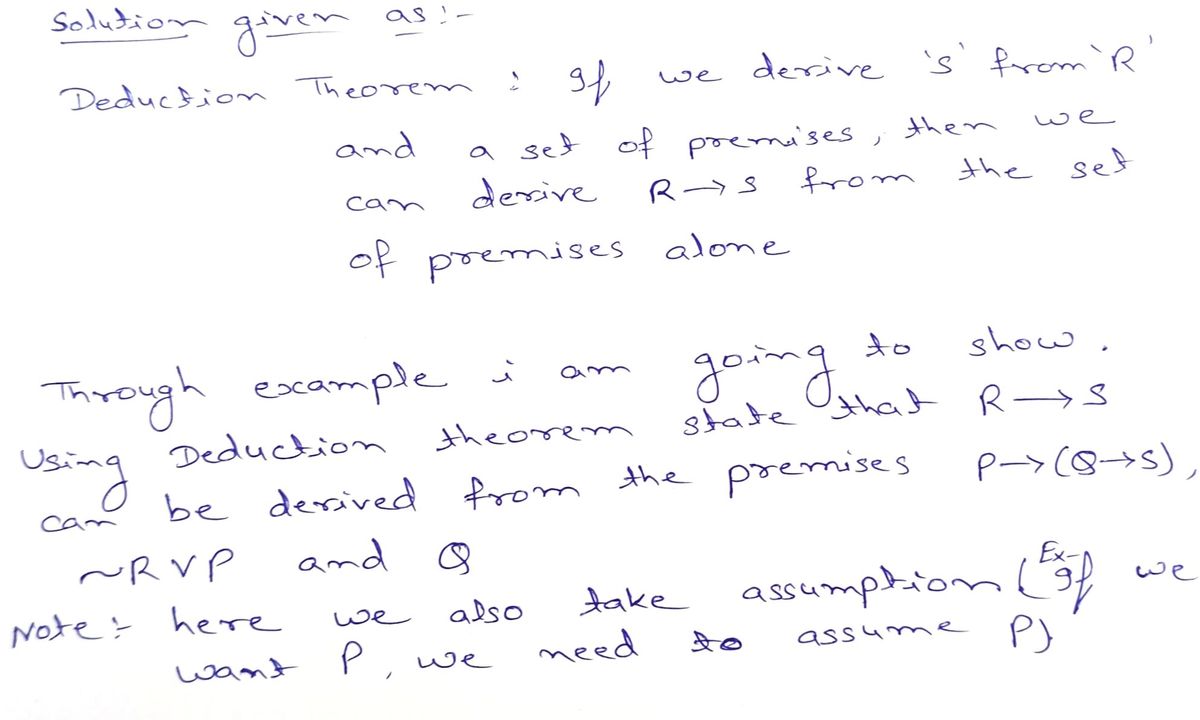 Solution given as :-
Deduction Theorem : If we derive 'S' from 'R'
and a set of premises, then we
can derive R→S from the set
of premises alone
Through example i am going to show.
Using Deduction theorem state that R→S
can be derived from the premises P→(Q→S),
~R∨P and Q
Note :- here we also take assumption (Ex- If we
want P, we need to assume P)